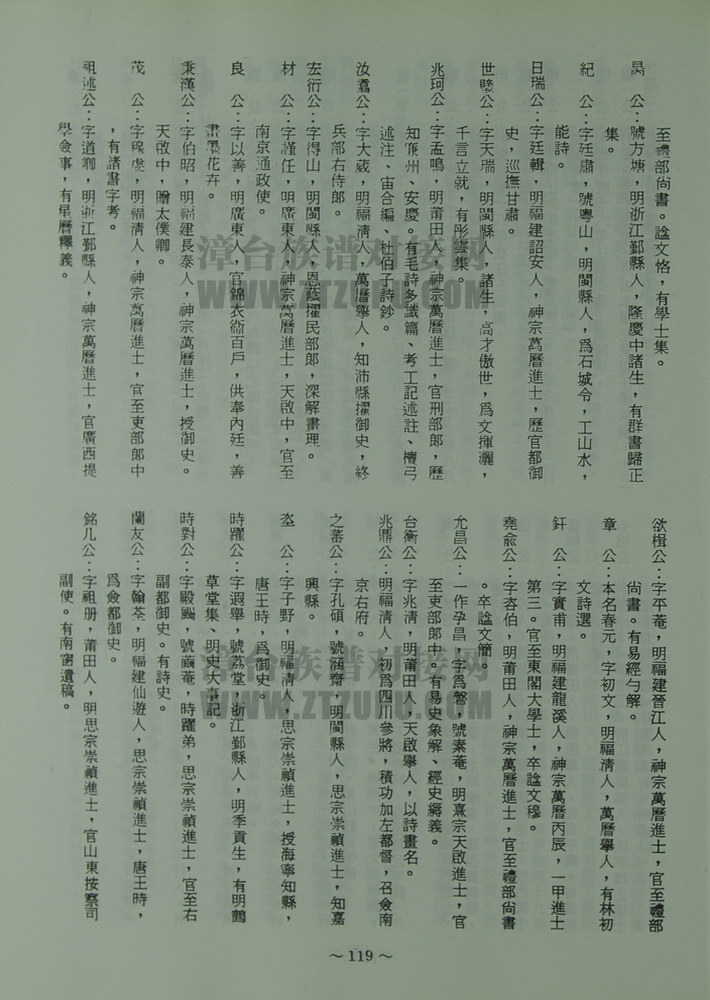 至禮部尚書。諡文恪,有學士集。
昺　公:號方塘,明浙江鄞縣人,隆慶中諸生,有群書歸正
集。
紀　公:字廷肅,號粵山,明閩縣人,爲石城令,工山水,
能詩。
日瑞公:字廷輯,明福建詔安人,神宗萬曆進士,歷官都御
史,巡撫甘肅。
世璧公:字天瑞,明閩縣人,諸生,高才傲世,爲文揮灑,
千言立就,有彤雲集。
兆珂公:字孟鳴,明莆田人,神宗萬曆進士,官刑部郎,歷
知 州、安慶。有毛詩多識篇、考工記述註、檀弓
述注、宙合編、杜伯子詩鈔。
汝翥公:字大葳,明福清人,萬曆舉人,知沛縣擢御史,終
兵部右侍郎。
宏衍公:字得山,明閩縣人,恩蔭擢民部郎,深解畫理。
材　公:字謹任,明廣東人,神宗萬曆進士,天啟中,官至
南京通政使。
良　公:字以善,明廣東人,官錦衣衛百戶,供奉內廷,善
畫墨花卉。
秉漢公:字伯昭,明福建長泰人,神宗萬曆進士,授御史。
天啟中,贈太僕卿。
茂　公:字 虔,明福清人,神宗萬曆進士,官至吏部郎中
,有諸書字考。
祖述公:字道卿,明浙江鄞縣人,神宗萬曆進士,官廣西提
學僉事,有星曆釋義。
欲楫公:字平菴,明福建晉江人,神宗萬曆進士,官至禮部
尚書。有易經勺解。
章　公:本名春元,字初文,明福清人,萬曆舉人,有林初
文詩選。
釬　公:字實甫,明福建龍溪人,神宗萬曆丙辰,一甲進士
第三。官至東閣大學士,卒諡文穆。
堯俞公:字咨伯,明莆田人,神宗萬曆進士,官至禮部尚書
。卒諡文簡。
允昌公:一作孕昌,字爲磐,號素菴,明熹宗天啟進士,官
至吏部郎中。有易史象解、經史 義。
台衡公:字兆清,明莆田人,天啟舉人,以詩畫名。
兆鼎公:明福清人,初爲四川參將,積功加左都督,召僉南
京右府。
之蕃公:字孔碩,號涵齋,明閩縣人,思宗崇禎進士,知嘉
興縣。
坴　公:字子野,明福清人,思宗崇禎進士,授海寧知縣,
唐王時,爲御史。
時躍公:字遐舉,號荔堂,浙江鄞縣人,明季貢生,有明鶴
草堂集、明史大事記。
時對公:字殿颺,號繭菴,時躍弟,思宗崇禎進士,官至右
副都御史。有詩史。
蘭友公:字翰荃,明福建仙遊人,思宗崇禎進士,唐王時,
爲僉都御史。
銘几公:字祖册,莆田人,明思宗崇禎進士,官山東按察司
副使。有南窗遺稿。
漳台族谱对接网
WWW.ZTZUPU.COM
漳台族谱对接网
WWW.ZTZUPU.COM
~119~